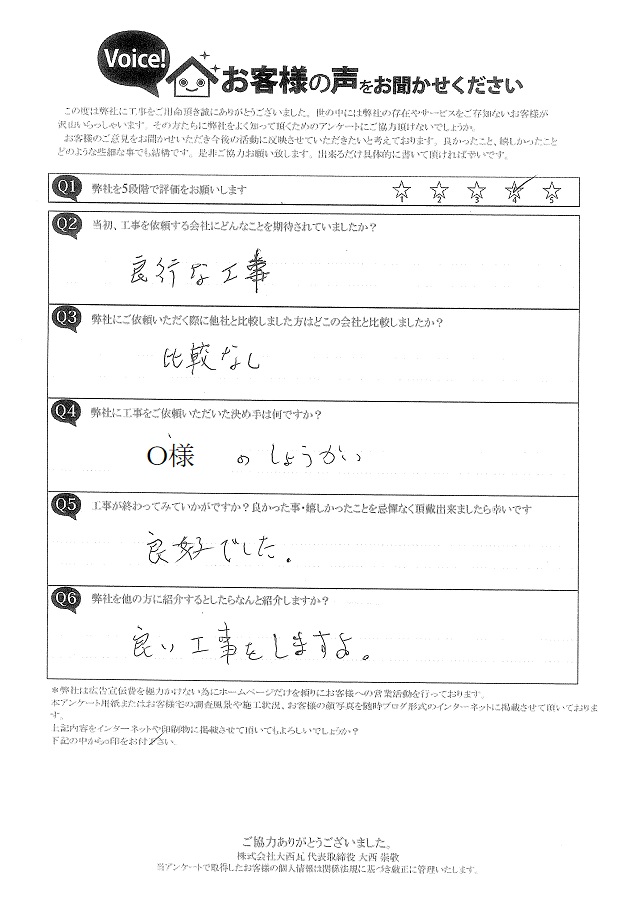 Voice!
お客様の声をお聞かせください
この度は弊社に工事をご用命頂き誠にありがとうございました。世の中には弊社の存在やサービスをご存知ないお客様が
沢山いらっしゃいます。その方たちに弊社をよく知って頂くためのアンケートにご協力頂けないでしょうか。
お客様のご意見をお聞かせいただき今後の活動に反映させていただきたいと考えております。良かったこと、嬉しかったこと
どのような些細な事でも結構です。是非ご協力お願い致します。出来るだけ具体的に書いて頂ければ幸いです。
Q1 弊社を5段階で評価をお願いします 1 2 3 4 5
Q2 当初、工事を依頼する会社にどんなことを期待されていましたか?
良行な工事
Q3 弊社にご依頼いただく際に他社と比較しました方はどこの会社と比較しましたか?
比較なし
Q4 弊社に工事をご依頼いただいた決め手は何ですか?
O様 のしょうかい
Q5 工事が終わってみていかがですか?良かった事・嬉しかったことを忌憚なく頂戴出来ましたら幸いです
良好でした。
Q6 弊社を他の方に紹介するとしたらなんと紹介しますか?
良い工事をしますよ。
*弊社は広告宣伝費を極力かけない為にホームページだけを頼りにお客様への営業活動を行っております。
本アンケート用紙またはお客様宅の調査風景や施工状況、お客様の顔写真を随時ブログ形式のインターネットに掲載させて頂いておりま
す。
上記内容をインターネットや印刷物に掲載させて頂いてもよろしいでしょうか?
下記の中から○印をお付下さい。
ご協力ありがとうございました。
株式会社大西瓦 代表取締役 大西 崇敬
当アンケートで取得したお客様の個人情報は関係法規に基づき厳正に管理いたします。